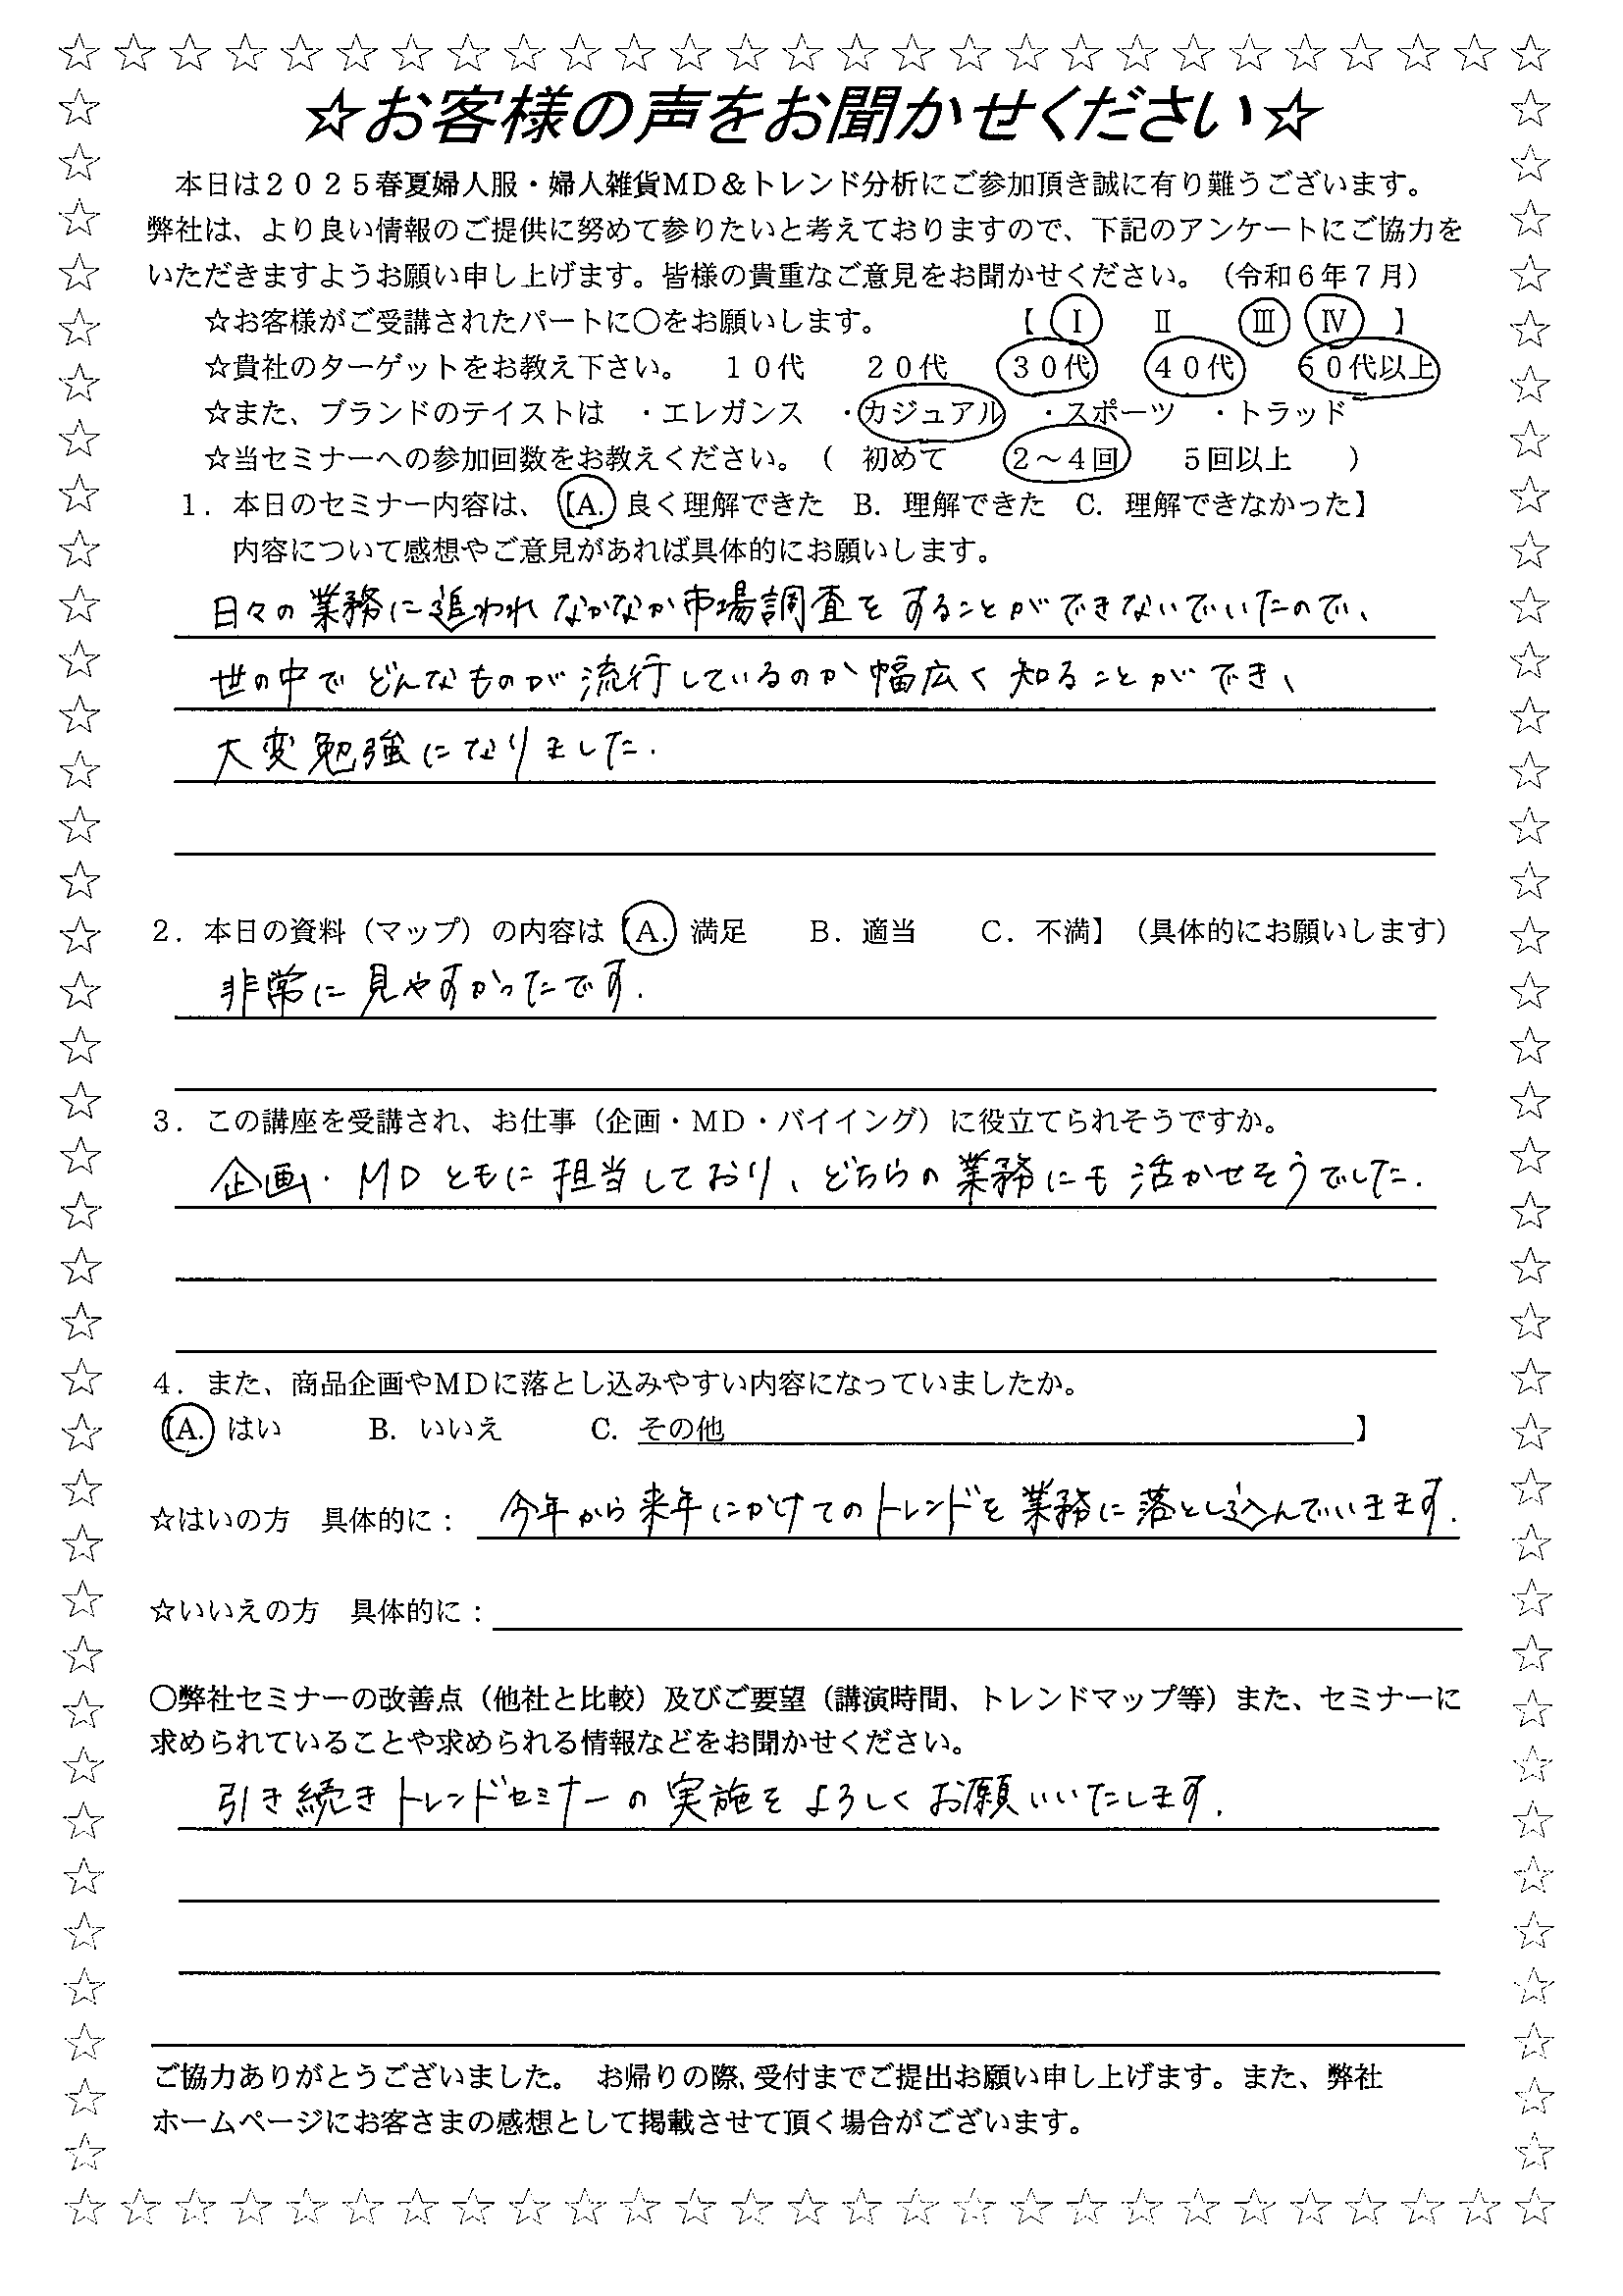 ☆お客様の声をお聞かせください☆
本日は２０２５春夏婦人服・婦人雑貨MD＆トレンド分析にご参加頂き誠に有り難うございます。
弊社は、より良い情報のご提供に努めて参りたいと考えておりますので、下記のアンケートにご協力を
いただきますようお願い申し上げます。皆様の貴重なご意見をお聞かせください。（令和６年７月）
☆お客様がご受講されたパートに〇をお願いします。　【　Ⅰ　Ⅱ　Ⅲ　Ⅳ　】
☆貴社のターゲットをお教え下さい。　１０代　２０代　３０代　４０代　５０代以上
☆また、ブランドのテイストは　・エレガンス　・カジュアル　・スポーツ　・トラッド
☆当セミナーへの参加回数をお教えください。（　初めて　２～４回　５回以上　）
１．本日のセミナー内容は、【A. 良く理解できた　B. 理解できた　C. 理解できなかった】
内容について感想やご意見があれば具体的にお願いします。
日々の業務に追われなかなか市場調査をすることができないでいたので、
世の中でどんなものが流行しているのか幅広く知ることができ、
大変勉強になりました.
２．本日の資料（マップ）の内容は【A. 満足　B. 適当　C. 不満】（具体的にお願いします）
非常に見やすかったです.
３．この講座を受講され、お仕事（企画・MD・バイイング）に役立てられそうですか。
企画・MDともに担当しており、どちらの業務にも活かせそうでした.
４．また、商品企画やMDに落とし込みやすい内容になっていましたか。
【A. はい　B. いいえ　C. その他　】
☆はいの方　具体的に：今年から来年にかけてのトレンドを業務に落とし込んでいます.
☆いいえの方　具体的に：
〇弊社セミナーの改善点（他社と比較）及びご要望（講演時間、トレンドマップ等）また、セミナーに
求められていることや求められる情報などをお聞かせください。
引き続きトレンドセミナーの実施をよろしくお願いいたします.
ご協力ありがとうございました。　お帰りの際、受付までご提出お願い申し上げます。また、弊社
ホームページにお客さまの感想として掲載させて頂く場合がございます。